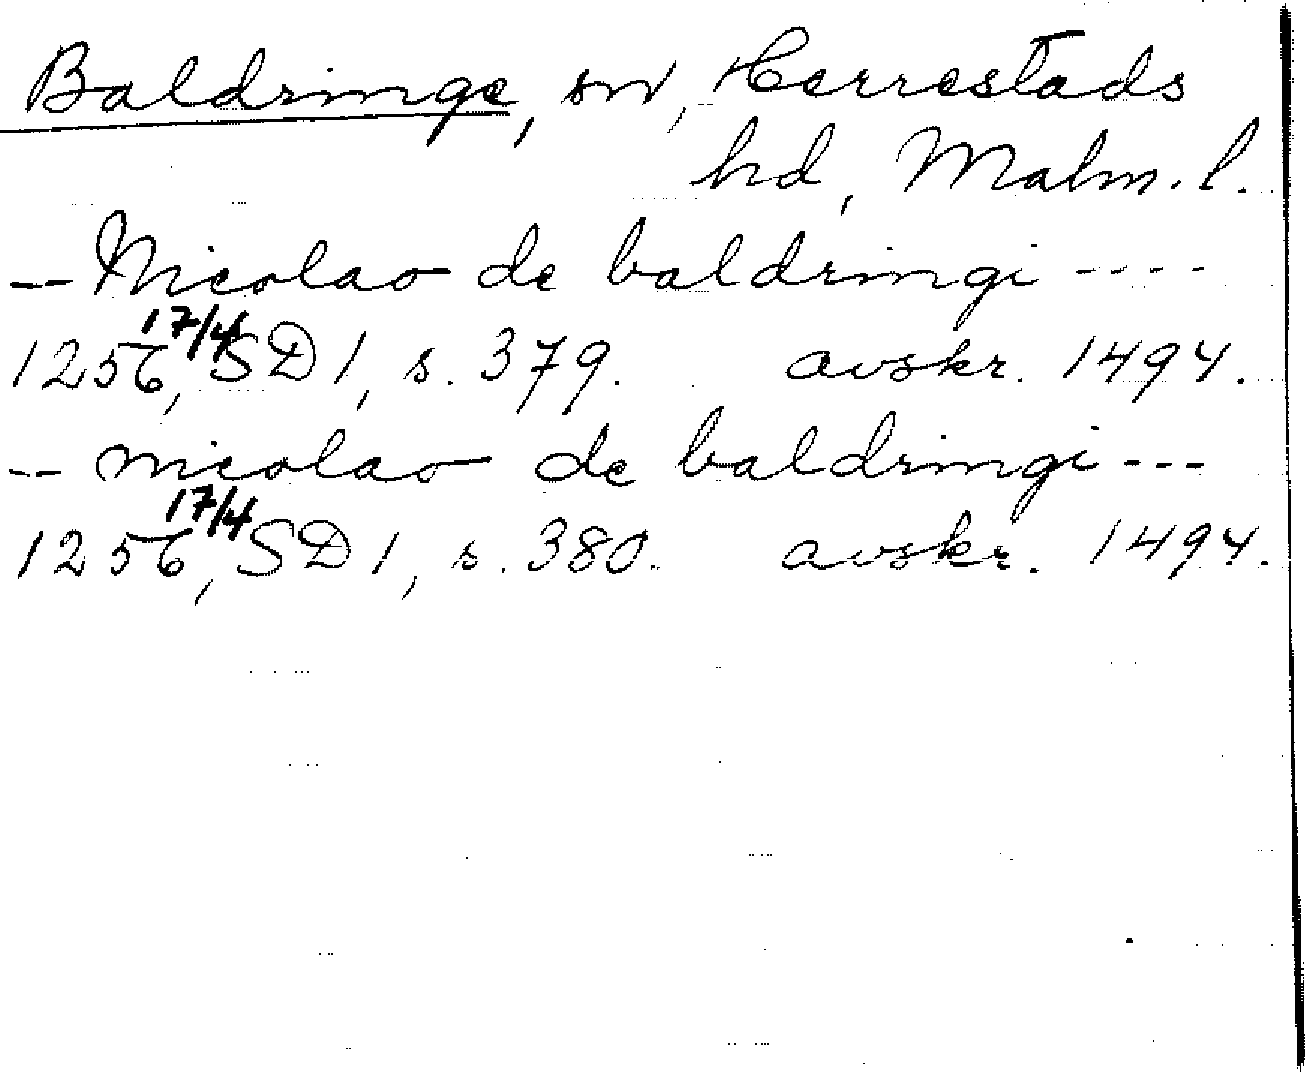 Baldringe, sn, Herrestads
hd, Malm. l.
-- Nicolao de baldringi ----
1256 17/4, SD 1, s. 379. avskr. 1494.
-- nicolao de baldringi ---
1256 17/4, SD 1, s. 380. avskr. 1494.